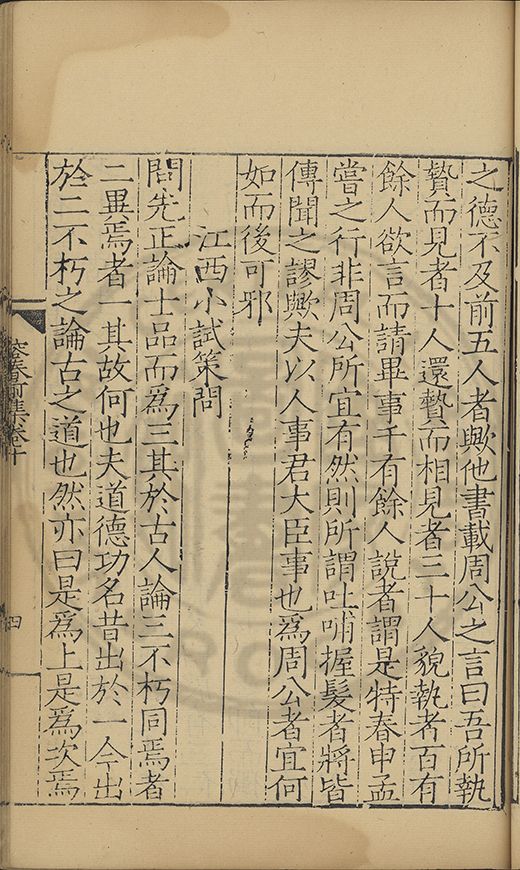 之德不及前五人者歟他書載周公之言曰吾所執
贄而見者十人還贄而相見者三十人貌執者百有
餘人欲言而請畢事千有餘人說者謂是特春申孟
嘗之行非周公所宜有然則所謂吐哺握髮者將皆
傳聞之謬歟夫以人事君大臣事也為周公者宜何
如而後可邪
江西小試策問
問先正論士品而為三其於古人論三不朽同焉者
二異焉者一其故何也夫道德功名昔出於一今出
於二不朽之論古之道也然亦曰是為上是為次焉
前集卷十
四